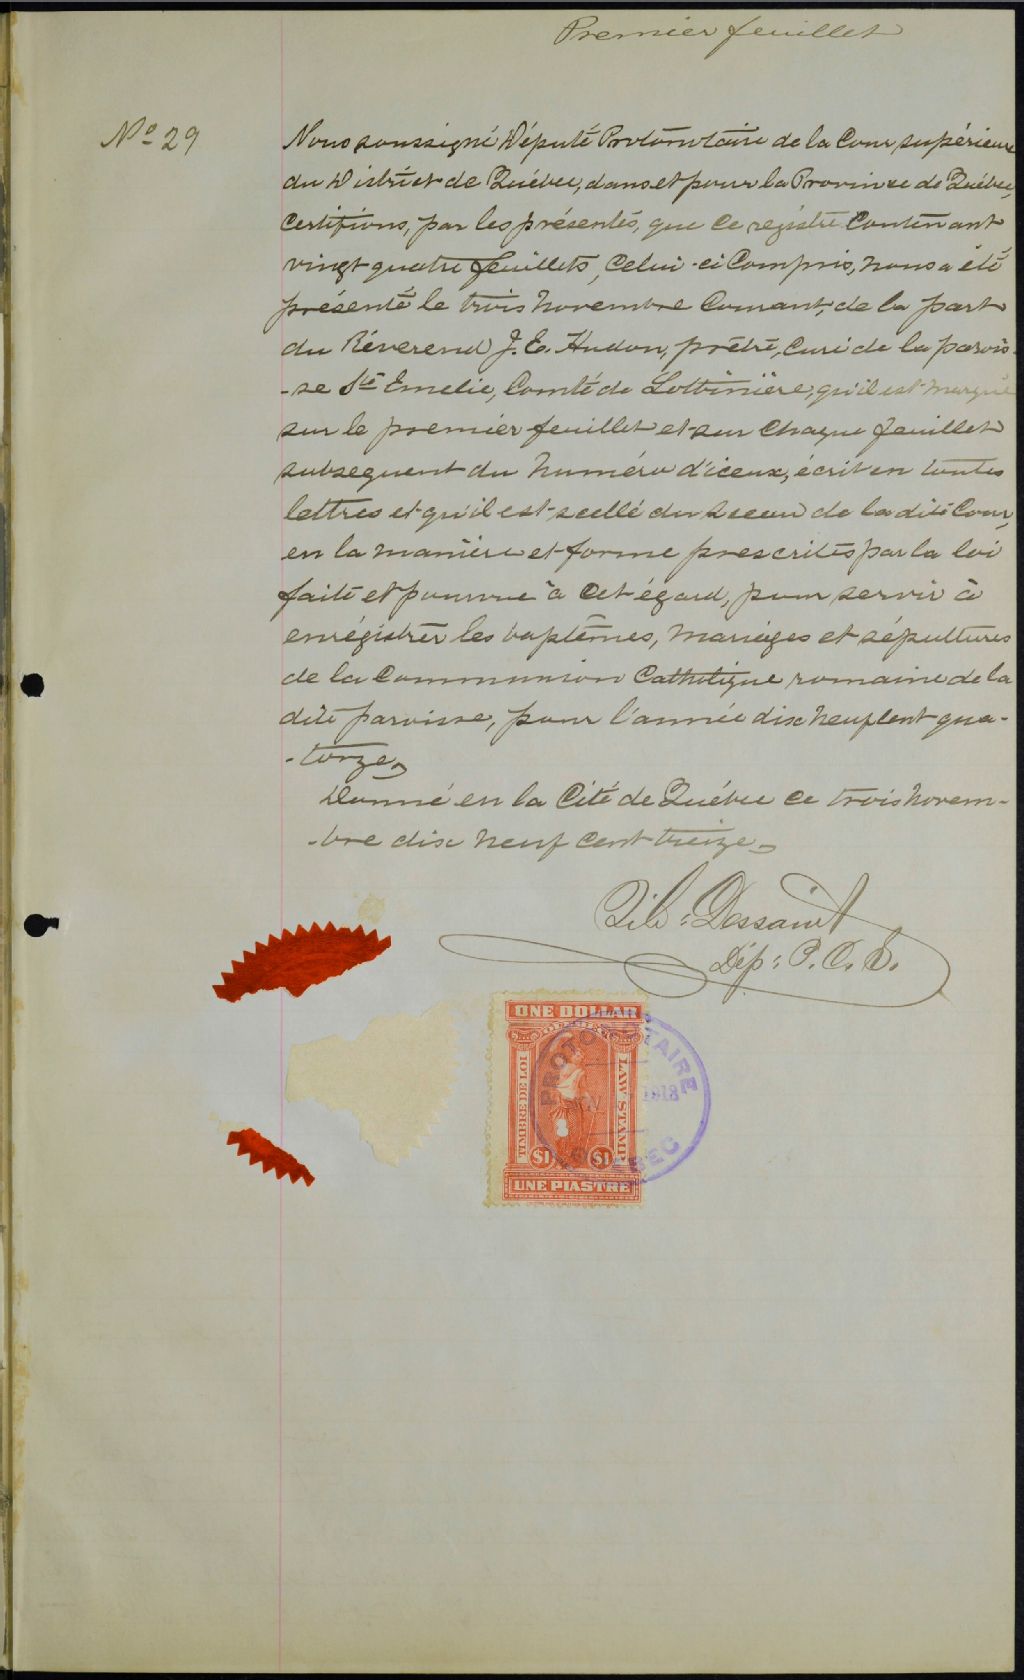 Premier feuillet
No 29
Nous soussigné Député Protonotaire de la Cour supérieure
du District de Québec, dans et pour la Province de Québec,
Certifions, par les présentes, que ce registre Contenant
vingt quatre feuillets, Celui-ci Compris, nous a été
présenté le trois novembre Courant, de la part
du Révérend J. E. Hudon, prêtre, Curé de la parois-
-se Ste Emelie, Comté de Lotbinière, qu'il est marqué
sur le premier feuillet et sur Chaque feuillet
subsequent du numéro d'iceux, écrit en toutes
lettres et qu'il est scellé du sceau de la dite Cour,
en la manière et forme prescrites par la loi
faite et pourvue à Cet égard, pour servir à
enrégistrer les baptêmes, mariages et sépultures
de la Communion Catholique romaine de la
dite paroisse, pour l'année dix neuf Cent qua-
-torze.
Donné en la Cité de Québec ce trois novem-
-bre dix neuf cent treize.
Dessaint
Dép: P. C. S.
ONE DOLLAR
TIMBRE DE LOI
LAW STAMP
$1 $1
UNE PIASTRE
PROTONOTAIRE
QUEBEC